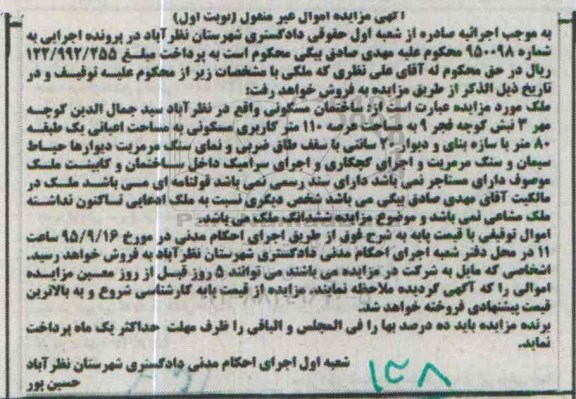 آگهی مزایده اموال غیر منقول (نوبت اول)
به موجب اجرائیه صادره از شعبه اول حقوقی دادگستری شهرستان نظرآباد در پرونده اجرایی به
شماره ۹۵۰۰۹۸ محکوم علیه مهدی صادق بیگی محکوم است به پرداخت مبلغ ۱۲۲/۹۹۲/۲۵۵
ریال در حق محکوم له آقای علی نظری که ملکی با مشخصات زیر از محکوم علیه توقیف و در
تاریخ ذیل الذکر از طریق مزایده به فروش خواهد رفت:
ملک مورد مزایده عبارت است از: ساختمان مسکونی واقع در نظرآباد سید جمال الدین کوچه
مهر ۳ نبش کوچه فجر ۹ به مساحت عرصه ۱۱۰ متر کاربری مسکونی به مساحت اعیانی یک طبقه
۸۰ متر با سازه بنای و دیوار ۲۰ سانتی با سقف طاق ضربی و نمای سنگ مرمریت دیوارها حیاط
سیمان و سنگ مرمریت و اجرای گچکاری و اجرای سرامیک داخل ساختمان و کابینت ملک
موصوف دارای مستاجر نمی باشد دارای سند رسمی نمی باشد قولنامه ای می باشد ملک در
مالکیت آقای مهدی صادق بیگی می باشد شخص دیگری نسبت به ملک ادعایی تاکنون نداشته
ملک مشاعی نمی باشد و موضوع مزایده ششدانگ ملک می باشد.
اموال توقیفی با قیمت پایه به شرح فوق از طریق اجرای احکام مدنی در مورخ ۹۵/۹/۱۶ ساعت
۱۱ در محل دفتر شعبه اجرای احکام مدنی دادگستری شهرستان نظرآباد به فروش خواهد رسید.
اشخاصی که مایل به شرکت در مزایده می باشند می توانند ۵ روز قبل از روز معین مزایده
اموالی را که آگهی گردیده ملاحظه نمایند، مزایده از قیمت پایه کارشناسی شروع و به بالاترین
قیمت پیشنهادی فروخته خواهد شد.
برنده مزایده باید ده درصد بها را فی المجلس و الباقی را ظرف مهلت حداکثر یک ماه پرداخت
نماید.
شعبه اول اجرای احکام مدنی دادگستری شهرستان نظرآباد
حسین پور